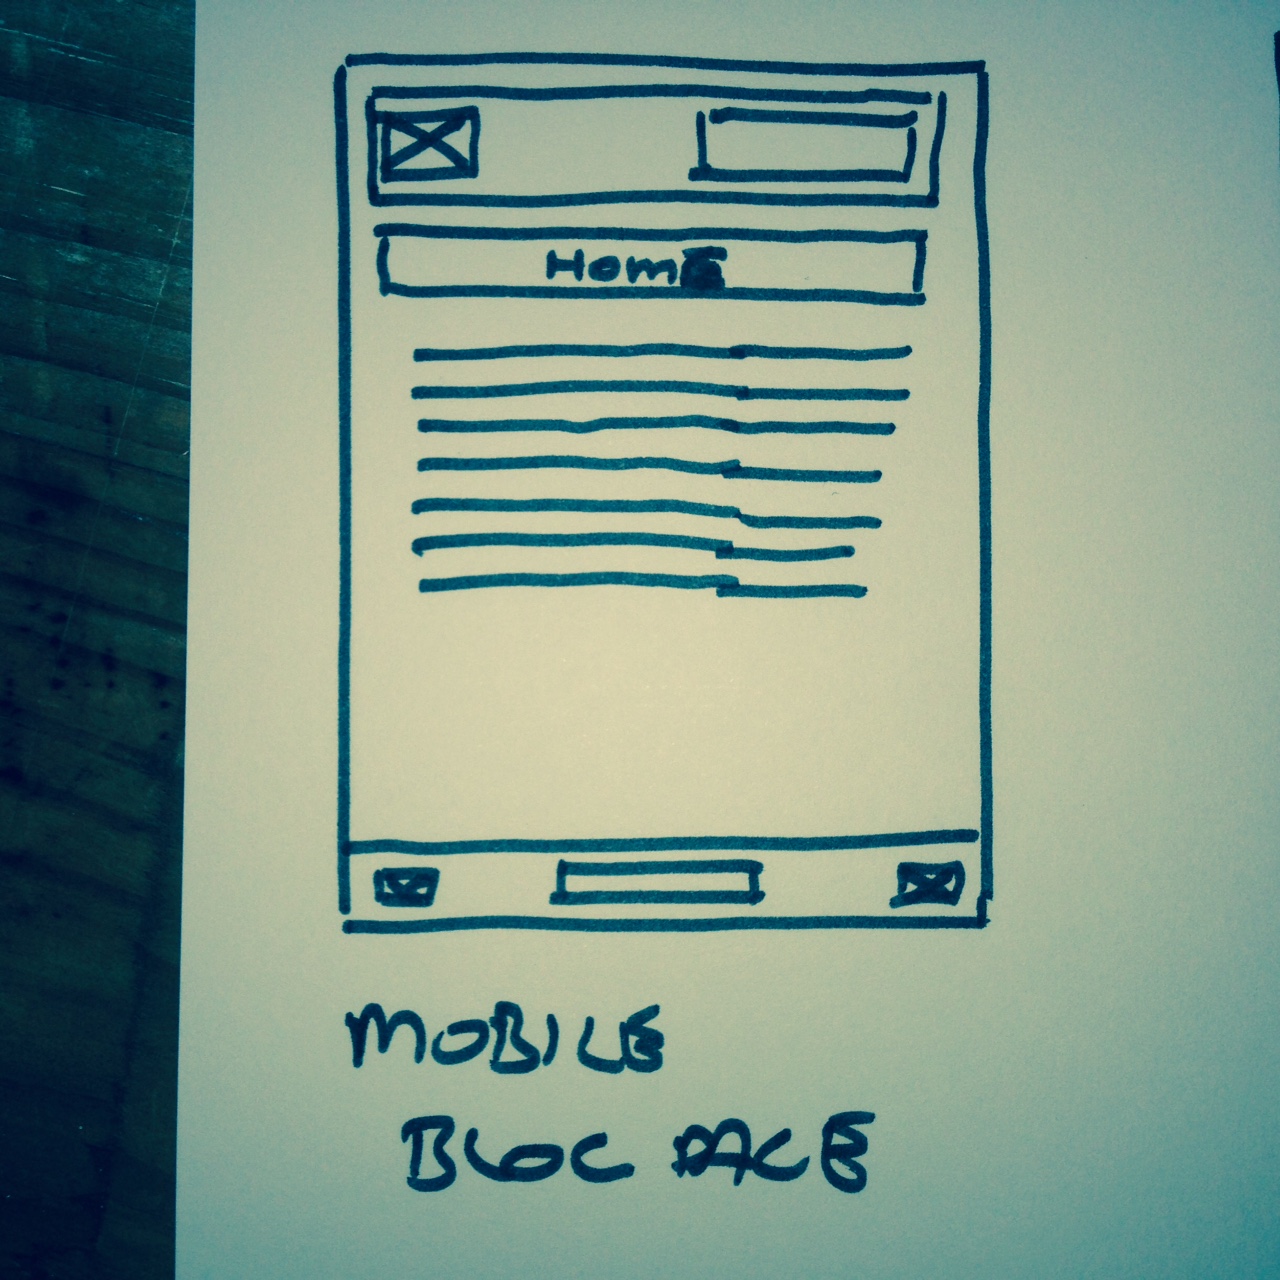 Home
MOBILE
BLOG PAGE